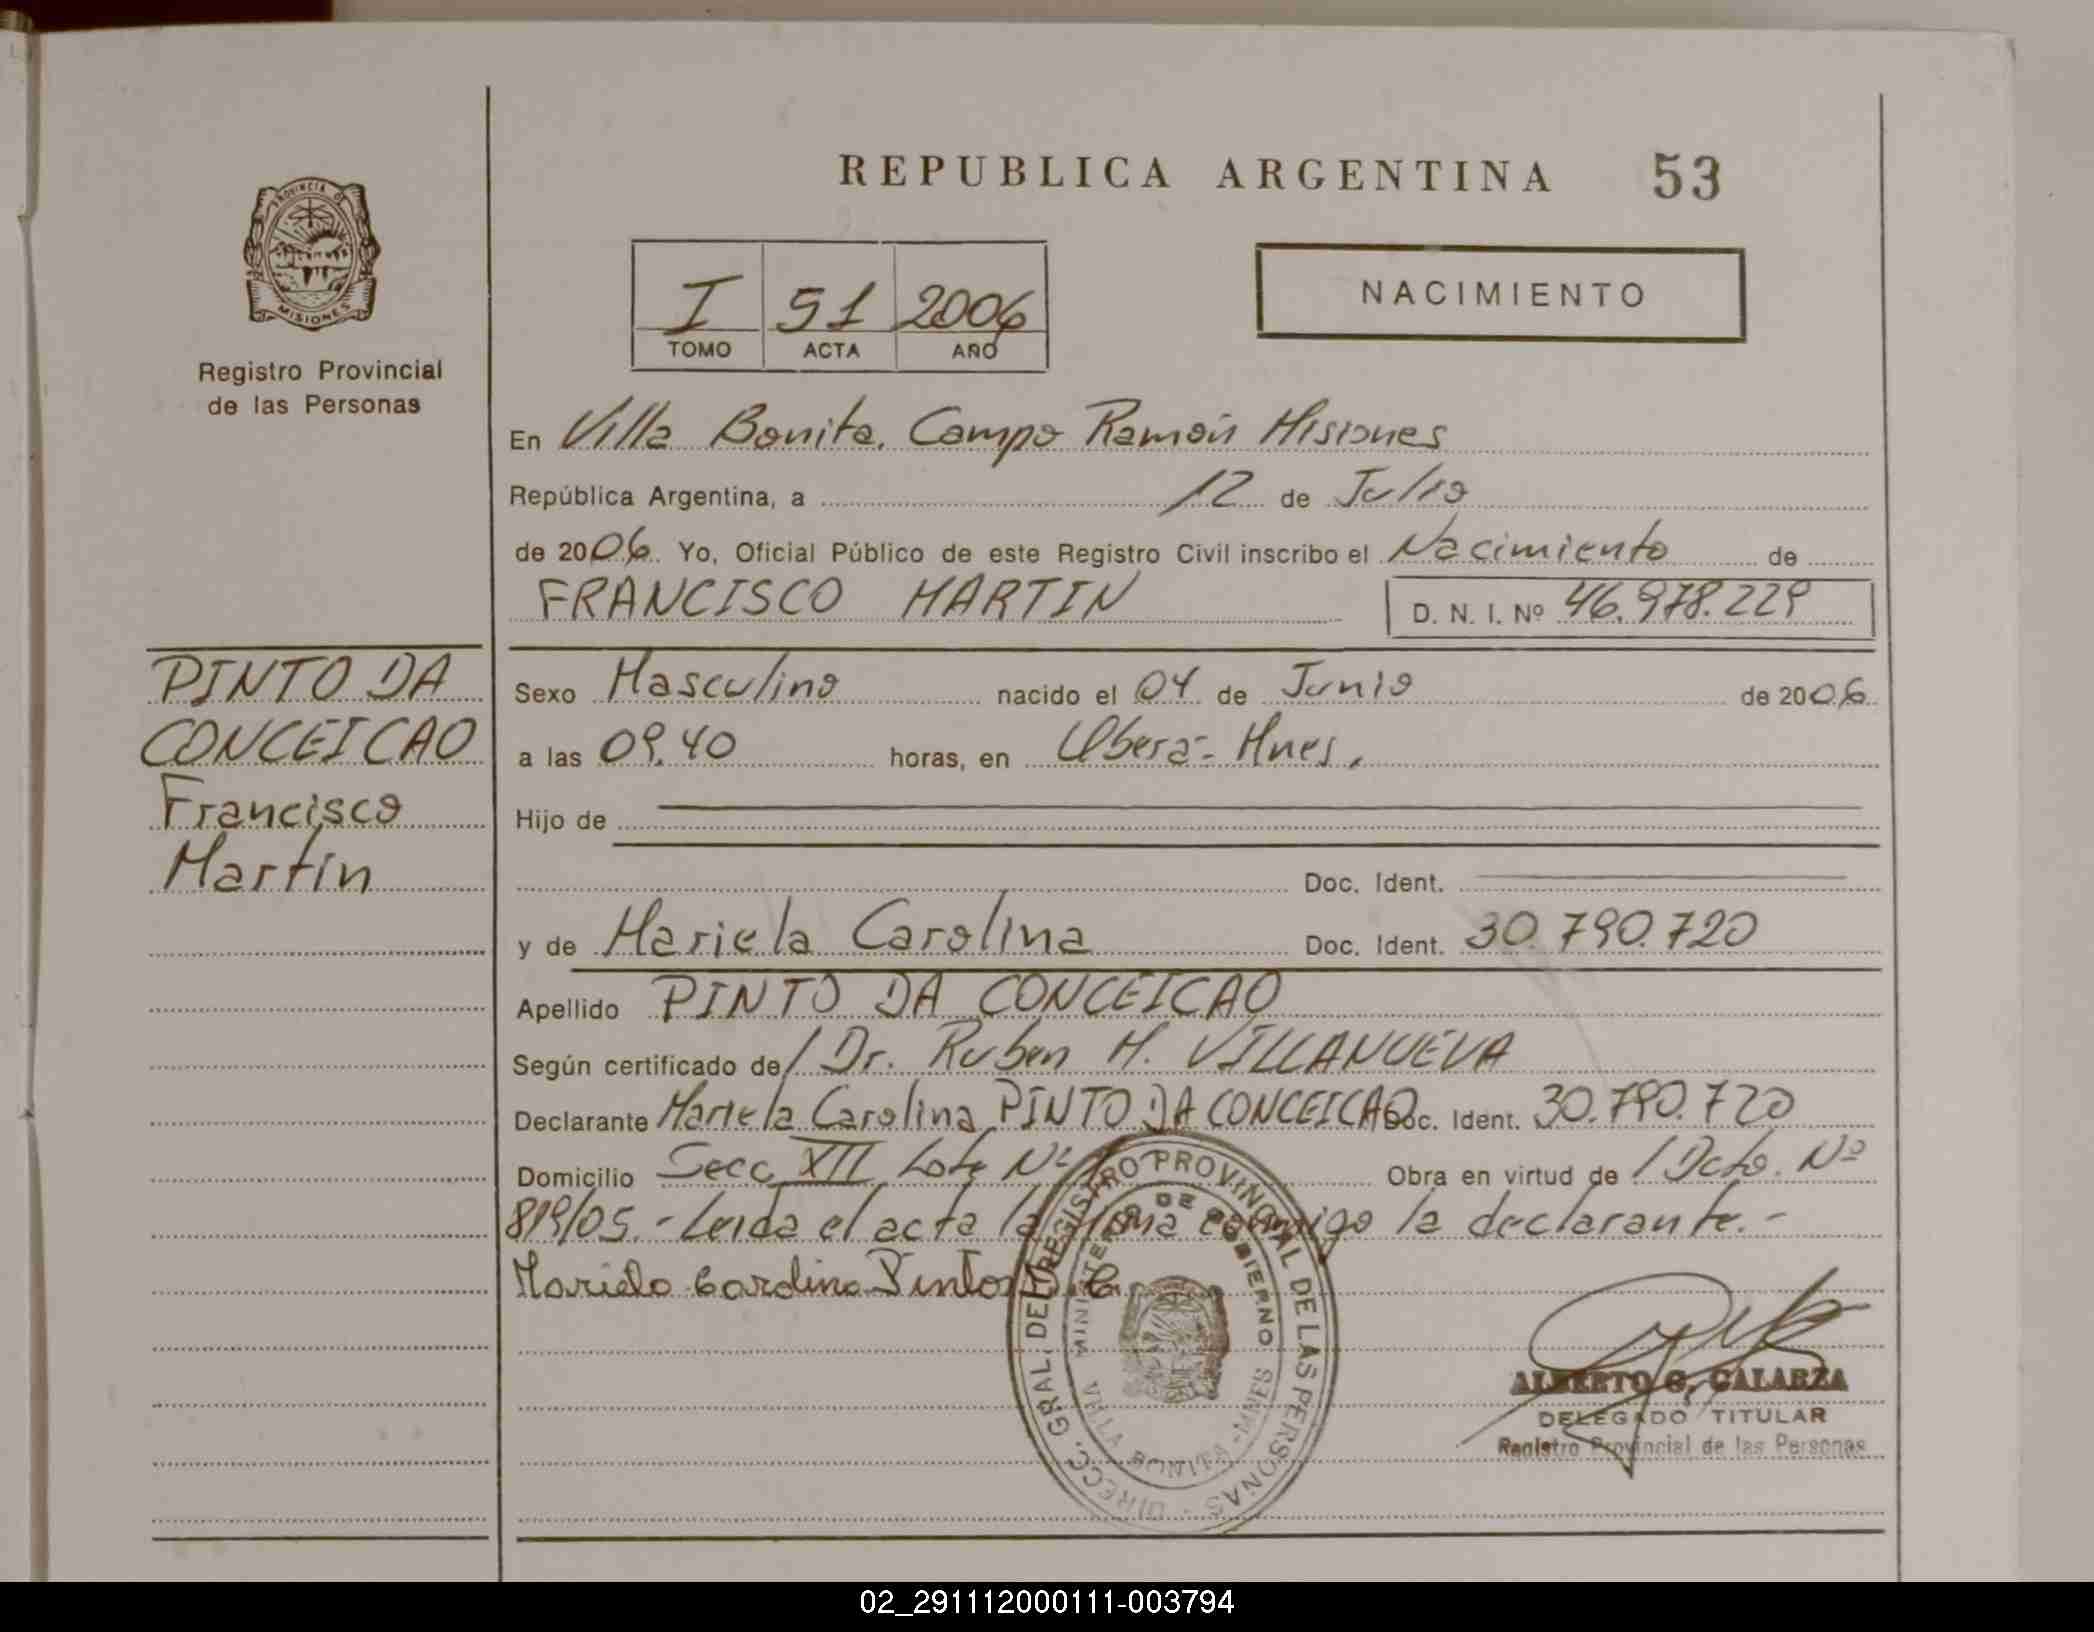 REPUBLICA ARGENTINA 53
PROVINCIA DE
MISIONES
Registro Provincial
de las Personas
I 51 2006
TOMO ACTA AÑO
NACIMIENTO
En Villa Bonita. Campo Ramón Misiones
República Argentina, a 12 de Julio
de 2006. Yo, Oficial Público de este Registro Civil inscribo el Nacimiento de
FRANCISCO MARTIN D. N. I. Nº 46.978.229
PINTO DA
CONCEICAO
Francisco
Martín
Sexo Masculino nacido el 04 de Junio de 2006.
a las 09.40 horas, en Oberá - Mnes.
Hijo de
Doc. Ident.
y de Mariela Carolina Doc. Ident. 30.790.720
Apellido PINTO DA CONCEICAO
Según certificado de/ Dr. Ruben H. VILLANUEVA
Declarante Mariela Carolina PINTO DA CONCEICAO Doc. Ident. 30.790.720
Domicilio Secc XII Lote Nº Obra en virtud de / Dcto. Nº
819/05.- Leida el acta la firma conmigo la declarante.-
Mariela Carolina Pinto D. C.
DIRECC. GRAL. DEL REGISTRO PROVINCIAL DE LAS PERSONAS
MINISTERIO DE GOBIERNO
VILLA BONITA - MNES
ALBERTO G. GALARZA
DELEGADO TITULAR
Registro Provincial de las Personas
02_291112000111-003794